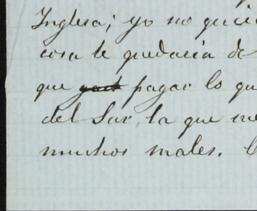 Inglesa; yo no quie
cosa le quedaria de
que pagar lo qu
del Sur, la que me
muchos males.